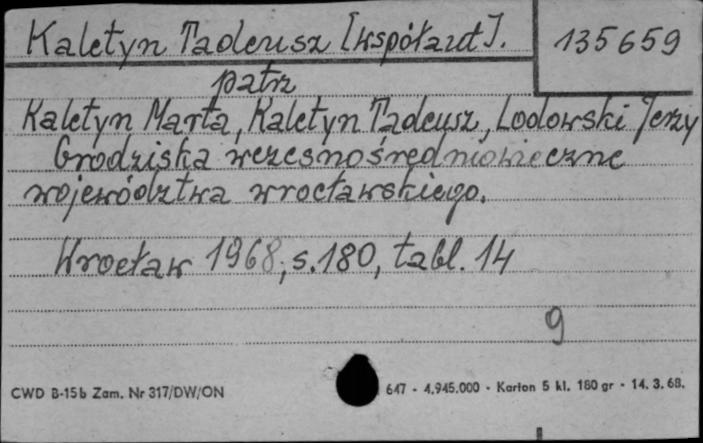 Kaletyn Tadeusz [współaut]. 135659
patrz
Kaletyn Marta, Kaletyn Tadeusz, Lodowski Jerzy
Grodziska wczesnośredniowieczne
województwa wrocławskiego.
Wrocław 1968, s. 180, tabl. 14
9
CWD B-15b Zam. Nr 317/DW/ON 647 - 4.945.000 - Karton 5 kl. 180 gr - 14. 3. 68.